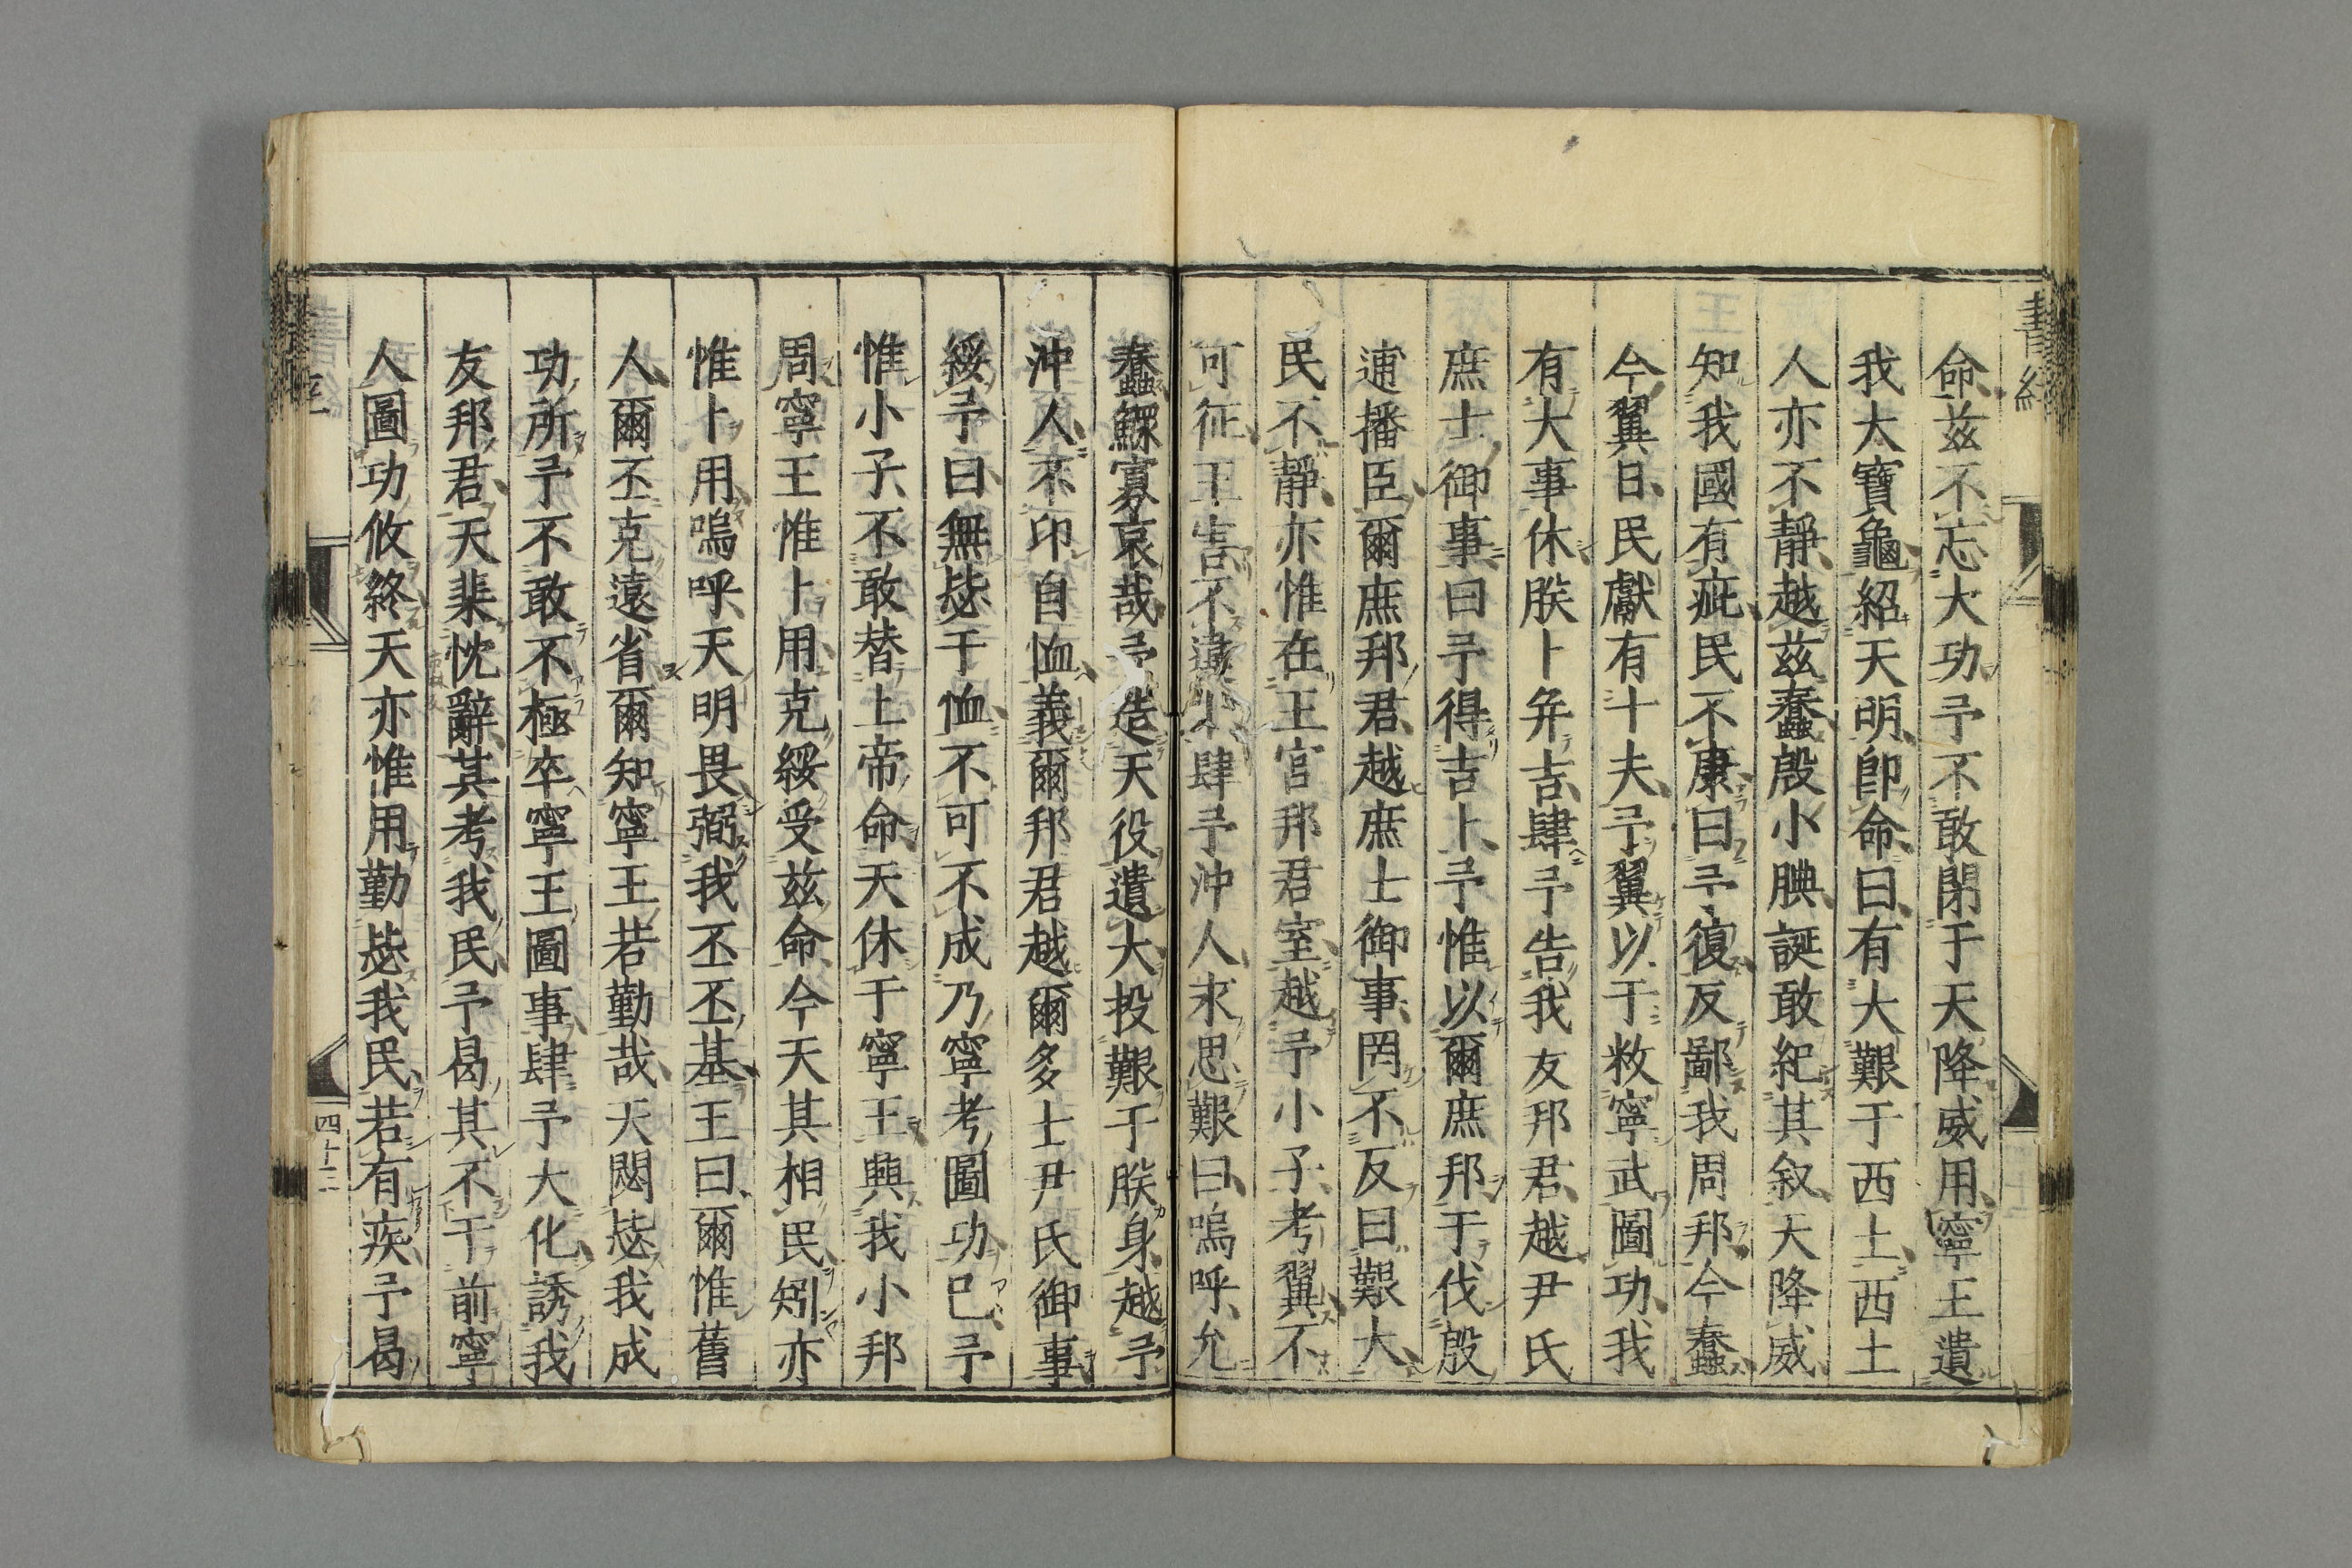 書經
命茲不忘大功予不敢閉于天降威用寧王遺
我大寶龜紹天明卽命曰有大艱于西土西土
人亦不靜越茲蠢殷小腆誕敢紀其叙天降威
知我國有疵民不康曰予復反鄙我周邦今蠢
今翼日民獻有十夫予翼以于敉寧武圖功我
有大事休朕卜幷吉肆予告我友邦君越尹氏
庶士御事曰予得吉卜予惟以爾庶邦于伐殷
逋播臣爾庶邦君越庶士御事罔不反曰艱大
民不靜亦惟在王宮邦君室越予小子考翼不
可征王害不違卜肆予沖人永思艱曰嗚呼允
蠢鰥寡哀哉予造天役遺大投艱于朕身越予
沖人不卬自恤義爾邦君越爾多士尹氏御事
綏予曰無毖于恤不可不成乃寧考圖功已予
惟小子不敢替上帝命天休于寧王興我小邦
周寧王惟卜用克綏受茲命今天其相民矧亦
惟卜用嗚呼天明畏弼我丕丕基王曰爾惟舊
人爾丕克遠省爾知寧王若勤哉天閟毖我成
功所予不敢不極卒寧王圖事肆予大化誘我
友邦君天棐忱辭其考我民予曷其不于前寧
人圖功攸終天亦惟用勤毖我民若有疾予曷
四十二